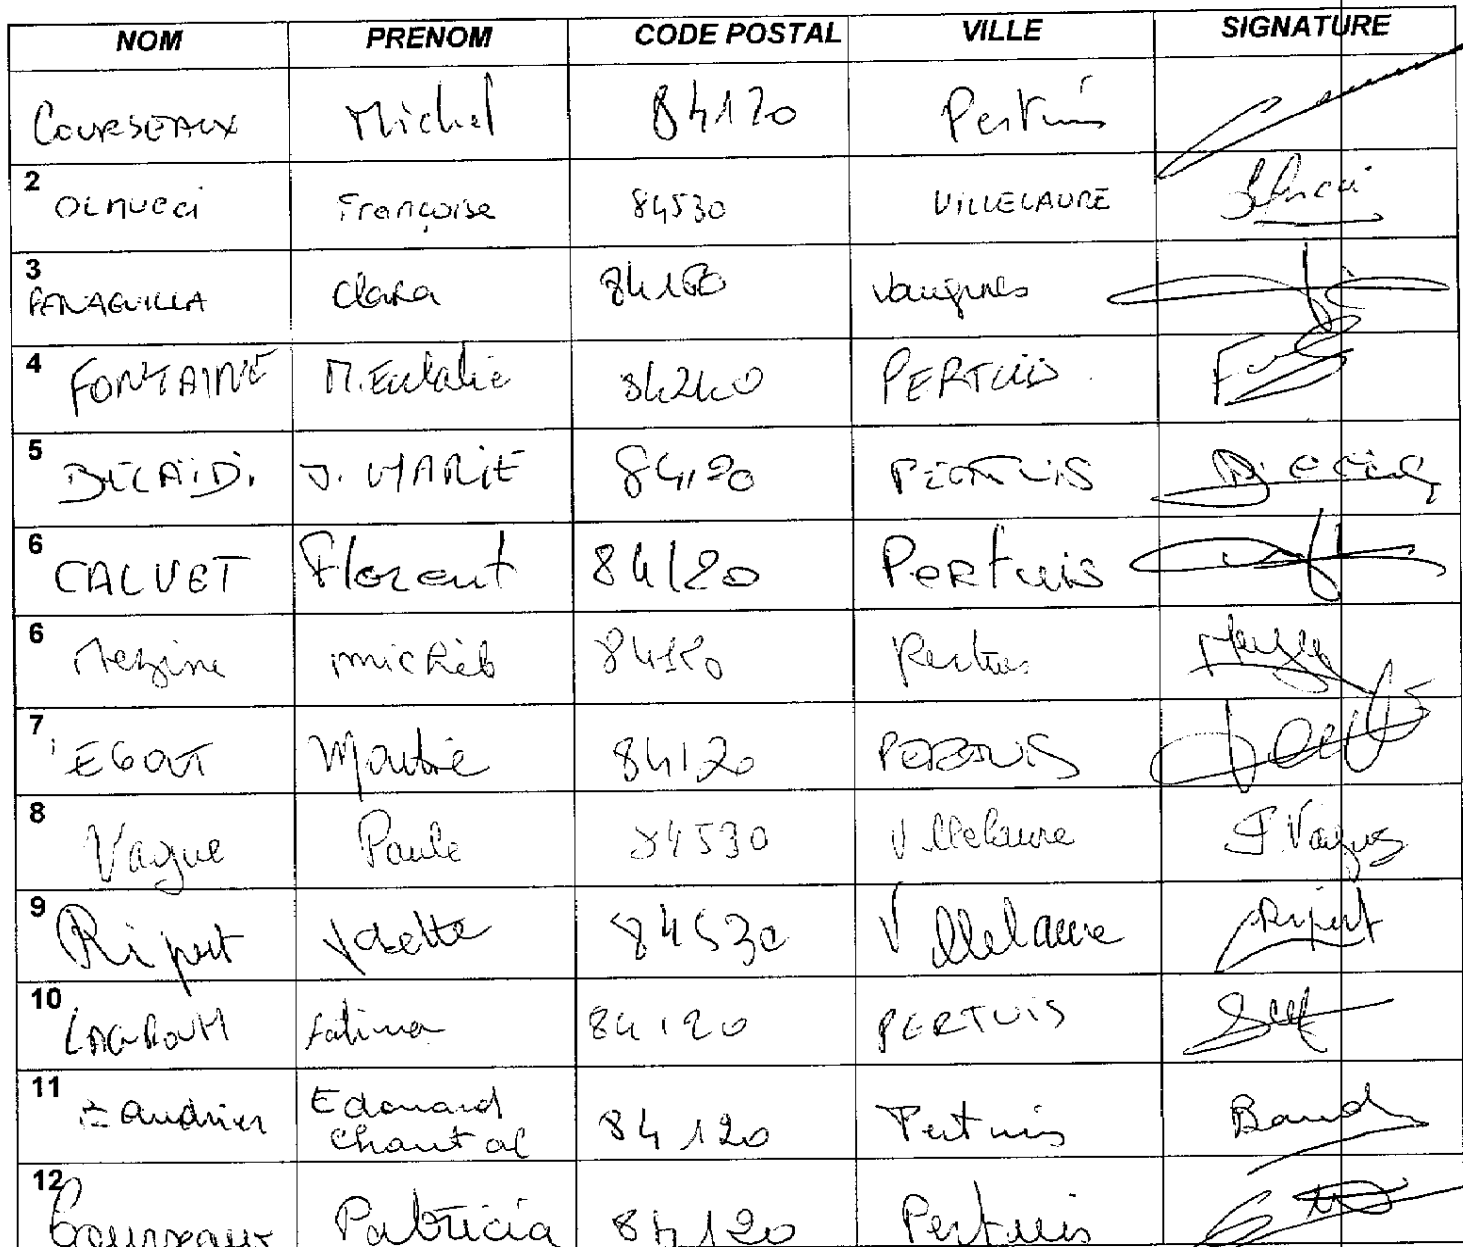 NOM PRENOM CODE POSTAL VILLE SIGNATURE
COURSEAUX Michel 84120 Pertuis
2 OLMUCCI Françoise 84530 VILLELAURE
3 PENAGUILLA Clara 84160 Vaugines
4 FONTAINE M. Eulalie 84240 PERTUIS
5 J. MARIE 84120 PERTUIS
6 CALVET Florent 84120 Pertuis
6 michèle 84120 Pertuis
7 EGOUT 84120 PERTUIS
8 Vague Paule 84530 Villelaure P. Vague
9 Ripert Odette 84530 Villelaure Ripert
10 fatima 84120 PERTUIS
11 Baudrier Edouard 84120 Pertuis Baud
Chantal
12 Courseaux Patricia 84120 Pertuis